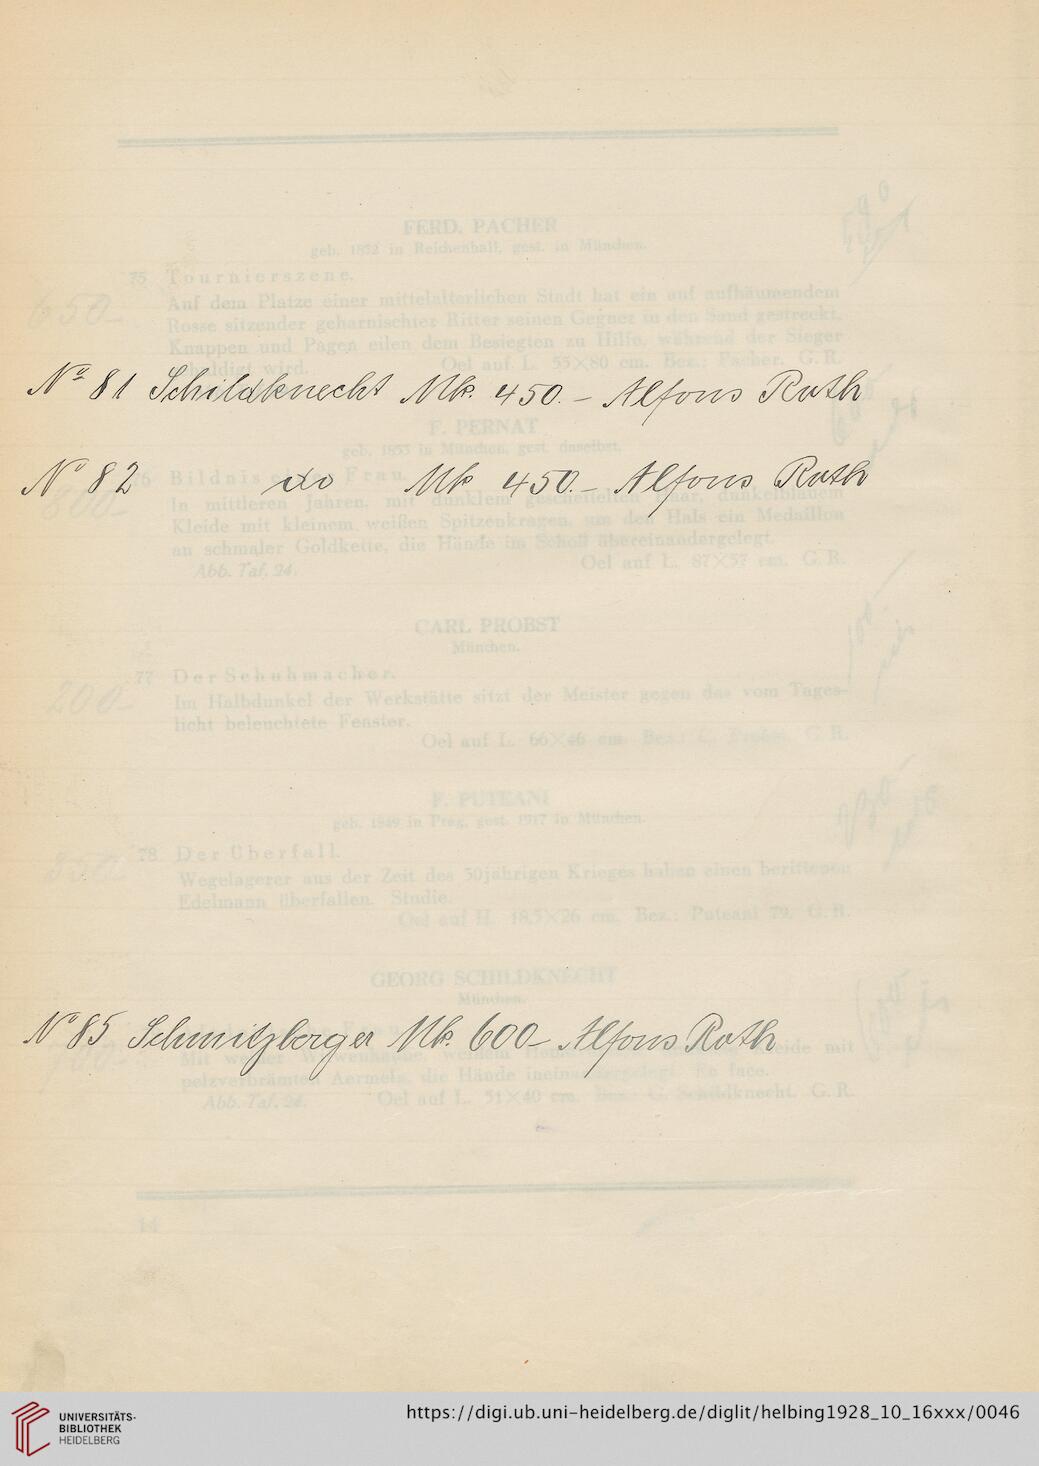 FERD. PACHER
geb. 1852 in Reichenhall, gest. in München.
650.-
75 Tournierszene.
Auf dem Platze einer mittelalterlichen Stadt hat ein auf aufbäumendem
Rosse sitzender geharnischter Ritter seinen Gegner in den Sand gestreckt.
Knappen und Pagen eilen dem Besiegten zu Hilfe, während der Sieger
wird. Oel auf L. 55×80 cm. Bez.: Pacher. G. R.
No 81 Schildknecht Mk. 450.- Alfons Roth
F. PERNAT
geb. 1853 in München, gest. daselbst.
No 82 do Mk 450.- Alfons Roth
76 Bildnis einer Frau.
800.-
In mittleren Jahren, mit dunklem gescheitelten Haar, dunkelblauem
Kleide mit kleinem weißen Spitzenkragen, um den Hals ein Medaillon
an schmaler Goldkette, die Hände im Schoß übereinandergelegt.
Abb. Taf. 24. Oel auf L. 87×57 cm. G. R.
CARL PROBST
München.
77 Der Schuhmacher.
200.-
Im Halbdunkel der Werkstätte sitzt der Meister gegen das vom Tages-
licht beleuchtete Fenster.
Oel auf L. 66×46 cm. Bez.: C. Probst. G. R.
F. PUTEANI
geb. 1849 in Prag, gest. 1917 in München.
78 Der Überfall.
Wegelagerer aus der Zeit des 30jährigen Krieges haben einen berittenen
Edelmann überfallen. Studie.
Oel auf H. 18,5×26 cm. Bez.: Puteani 79. G. R.
GEORG SCHILDKNECHT
München.
No 85 Schmitzberger Mk. 600- Alfons Roth
Mit weißer Hände ineinandergelegt. En face.
Abb. Taf. 24. Oel auf L. 51×40 cm. Bez.: G. Schildknecht. G. R.
14
UNIVERSITÄTS-
BIBLIOTHEK
HEIDELBERG
https://digi.ub.uni-heidelberg.de/diglit/helbing1928_10_16xxx/0046